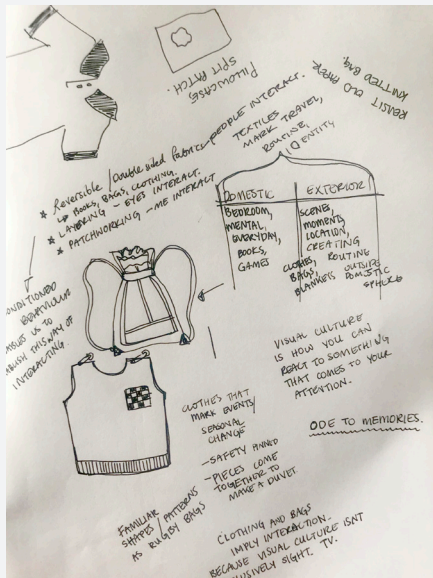 PILLOWCASES,
SPLIT PATCH.
REVISIT OLD PAPER
KNITTED BAG.
* Reversible / Double sided fabric - PEOPLE INTERACT.
↳ BOOKS, BAGS, CLOTHING.
* LAYERING - EYES INTERACT.
* PATCHWORKING - ME INTERACT
TEXTILES
MARK TRAVEL,
ROUTINE,
IDENTITY
DOMESTIC
BEDROOM,
MENTAL,
EVERYDAY,
BOOKS,
GAMES
EXTERIOR
SCENES,
MOMENTS,
LOCATION,
CREATING
CLOTHES, ROUTINE
BAGS, OUTSIDE
BLANKETS DOMESTIC
SPHERE
CONDITIONED
BEHAVIOUR
US TO
THIS WAY OF
INTERACTING.
VISUAL CULTURE
IS HOW YOU CAN
REACT TO SOMETHING
THAT COMES TO YOUR
ATTENTION.
ODE TO MEMORIES.
CLOTHES THAT
MARK EVENTS/
SEASONAL
CHANGE
- SAFETY PINNED
- PIECES COME
TOGETHER TO
MAKE A DUVET.
FAMILIAR
SHAPES / PATTERNS
AS RUGBY BAGS
CLOTHING AND BAGS
IMPLY INTERACTION.
BECAUSE VISUAL CULTURE ISNT
SIGHT. TV.